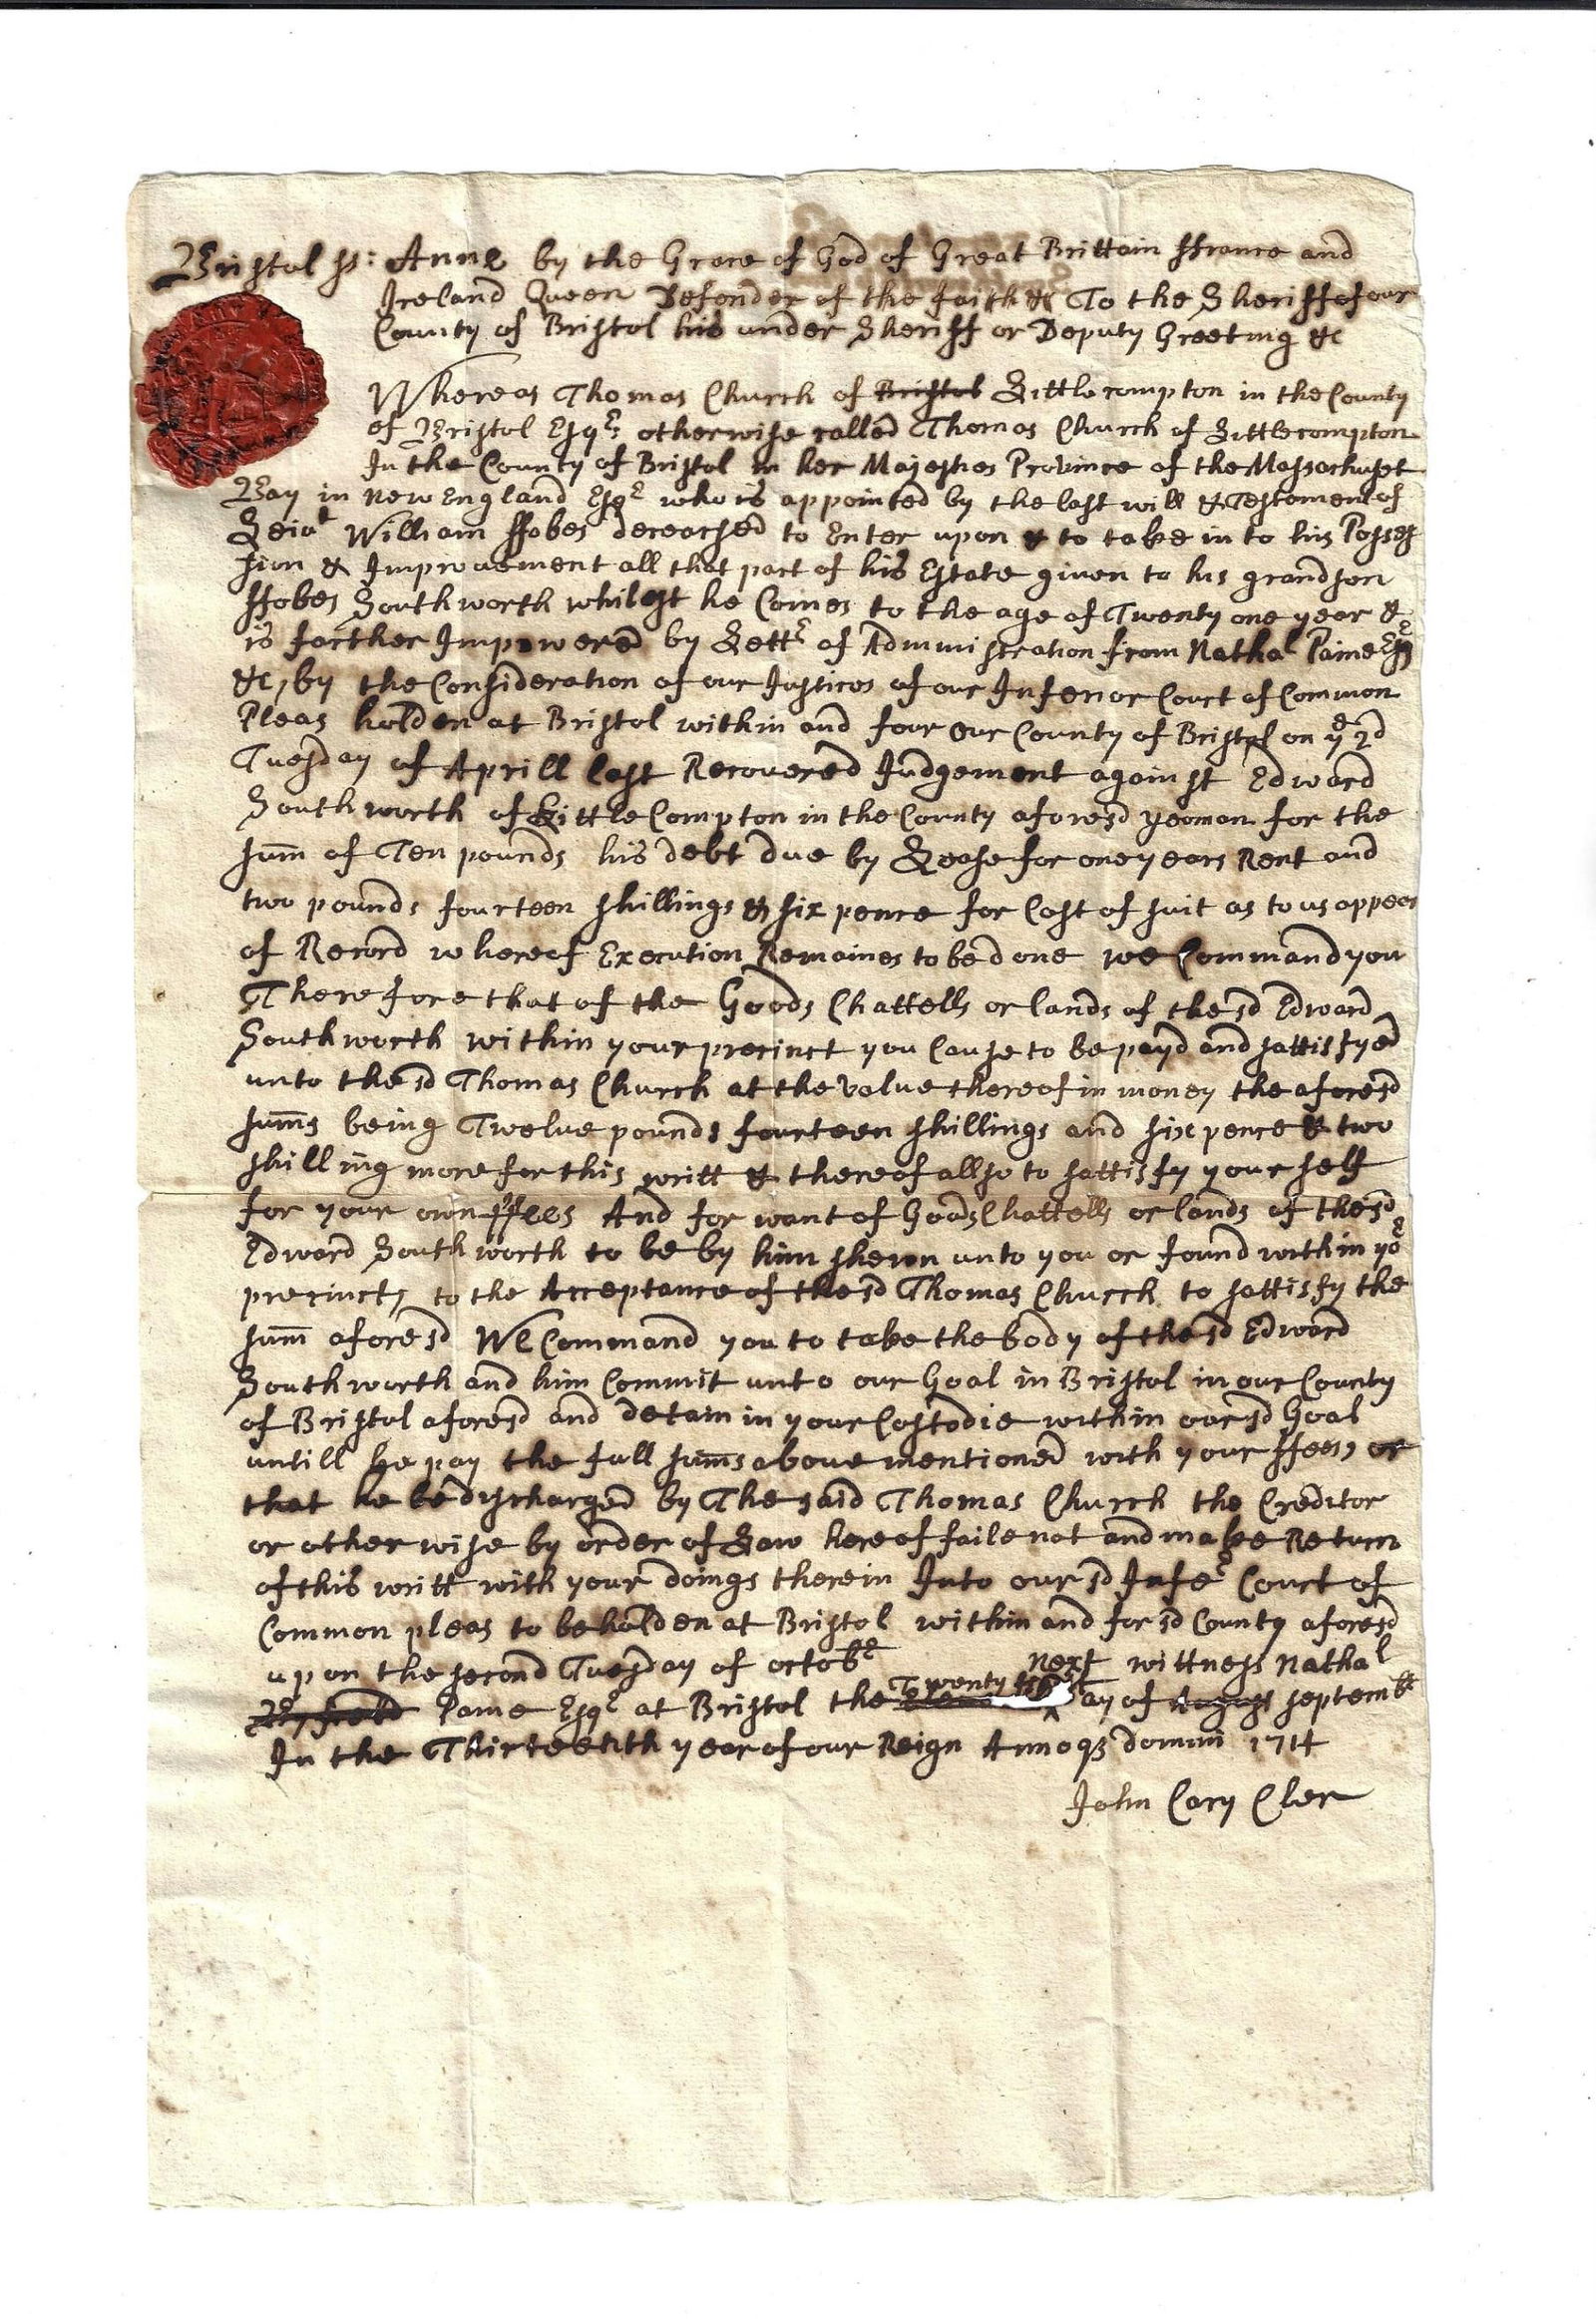 Bristol ss: Anne by the Grace of God of Great Brittain ffrance and
Ireland Queen Defender of the faith &c To the Sheriff of our
County of Bristol his under Sheriff or Deputy Greeting &c
Whereas Thomas Church of Bristol Littlecompton in the County
of Bristol Esqr: otherwise called Thomas Church of Littlecompton
In the County of Bristol in her Majesties Province of the Massachuset
Bay in New England Esqr who is appointed by the last will & Testament of
William ffobes deceassed to Enter upon & to take in to his Posses
sion & Improvement all that part of his Estate given to his grandson
ffobes Southworth whilest he Comes to the age of Twenty one year &
is farther Impowered by Lettr of Administration from Nathal Paine Esqr
&c, by the Consideration of our Justices of our Inferior Court of Common
Pleas holden at Bristol within and four our County of Bristol on ye 2d
Tuesday of Aprill last Recovered Judgement against Edward
Southworth of Little Compton in the County aforesd yeoman for the
sum̅ of Ten pounds his debt due by Lease for one years Rent and
two pounds fourteen shillings & six pence for Cost of suit as to us appear
of Record whereof Execution Remaines to be done we Command you
Therefore that of the Goods Chattells or lands of the sd Edward
Southworth within your precinct you Cause to be payd and sattisfyed
unto the sd Thomas Church at the value thereof in money the aforesd
sum̅s being Twelve pounds fourteen shillings and six pence & two
shilling more for this writt & thereof allso to sattisfy your self
for your own ffees And for want of Goods Chattells or lands of the sd
Edward Southworth to be by him shewn unto you or found within yor
precincts to the Acceptance of the sd Thomas Church to sattisfy the
sum̅ aforesd We Command you to take the body of the sd Edward
Southworth and him Commit unto our Goal in Bristol in our County
of Bristol aforesd and detain in your Costodie within our sd Goal
untill he pay the full sum̅s above mentioned with your ffees, or
that he be discharged by The said Thomas Church the Creditor
or other wise by order of Law hereof faile not and make Return
of this writt with your doings therein Into our sd Infer Court of
Common pleas to be holden at Bristol within and for sd County aforesd
upon the second Tuesday of octobr next wittness Nathal
Byfield Paine Esqr at Bristol the Twenty day of August septembr
In the Thirteenth year of our Reign Annoqs domini 1714
John Cary Cler